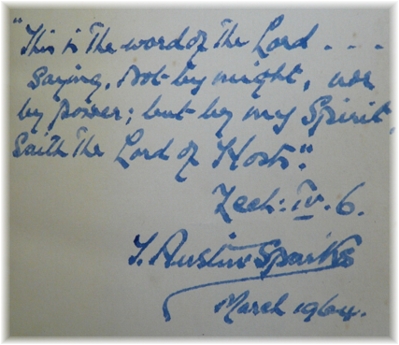 "This is The word of The Lord - - -
saying, Not by might, nor
by power; but by my Spirit,
Saith The Lord of Hosts."
Zech: IV. 6.
T. Austin-Sparks
March 1964.